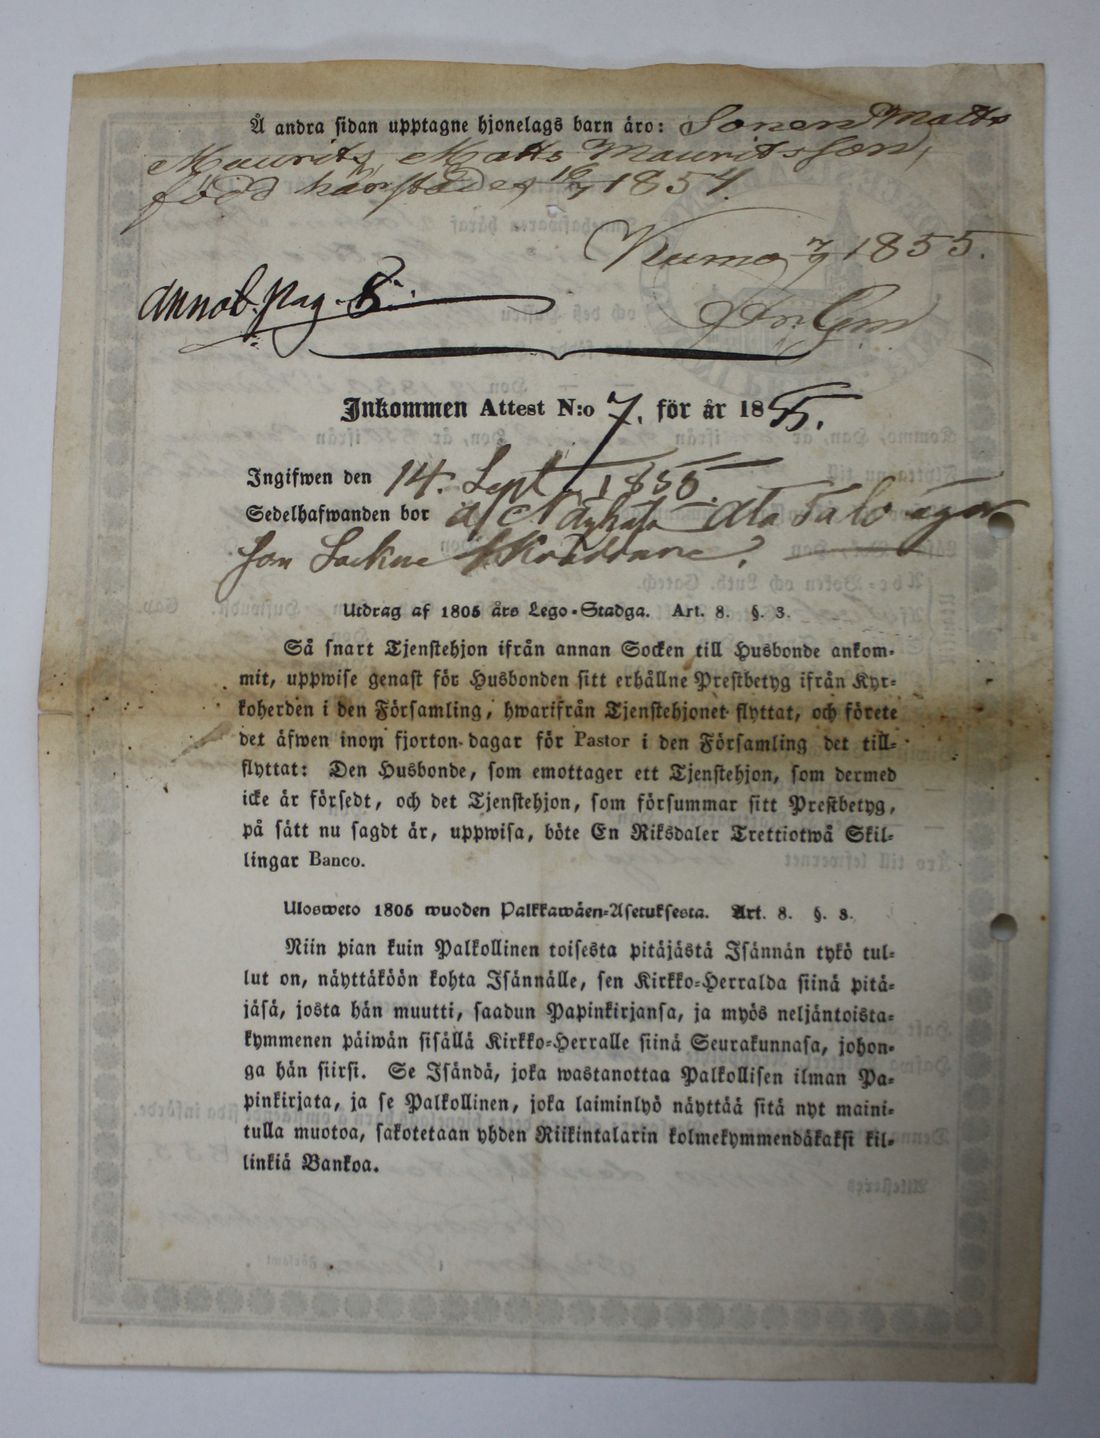 Å andra sidan upptagne hjonelags barn äro: Sonen Matts
Maurits, Matts Mauritsson,
född härstädes 16/7 1854.
Kumo 7/9 1855.
annot. pag. 8.
Inkommen Attest N:o 7. för år 1855.
Ingifwen den 14. Sept. 1855.
Sedelhafwanden bor
Sockne Skräddare.
Utdrag af 1805 års Lego-Stadga. Art. 8. §. 3.
Så snart Tjenstehjon ifrån annan Socken till Husbonde ankom-
mit, uppwise genast för Husbonden sitt erhållne Prestbetyg ifrån Kyr-
koherden i den Församling, hwarifrån Tjenstehjonet flyttat, och förete
det äfwen inom fjorton dagar för Pastor i den Församling det till-
flyttat: Den Husbonde, som emottager ett Tjenstehjon, som dermed
icke är försedt, och det Tjenstehjon, som försummar sitt Prestbetyg,
på sätt nu sagdt är, uppwisa, böte En Riksdaler Trettiotwå Skil-
lingar Banco.
Ulosweto 1805 wuoden Palkkawäen-Asetuksesta. Art. 8. §. 3.
Niin pian kuin Palkollinen toisesta pitäjästä Isännän tykö tul-
lut on, näyttäköön kohta Isännälle, sen Kirkko-Herralda siinä pitä-
jäsä, josta hän muutti, saadun Papinkirjansa, ja myös neljäntoista-
kymmenen päiwän sisällä Kirkko-Herralle siinä Seurakunnasa, johon-
ga hän siirsi. Se Isändä, joka wastanottaa Palkollisen ilman Pa-
pinkirjata, ja se Palkollinen, joka laiminlyö näyttää sitä nyt maini-
tulla muotoa, sakotetaan yhden Riikintalarin kolmekymmendäkaksi kil-
linkiä Bankoa.